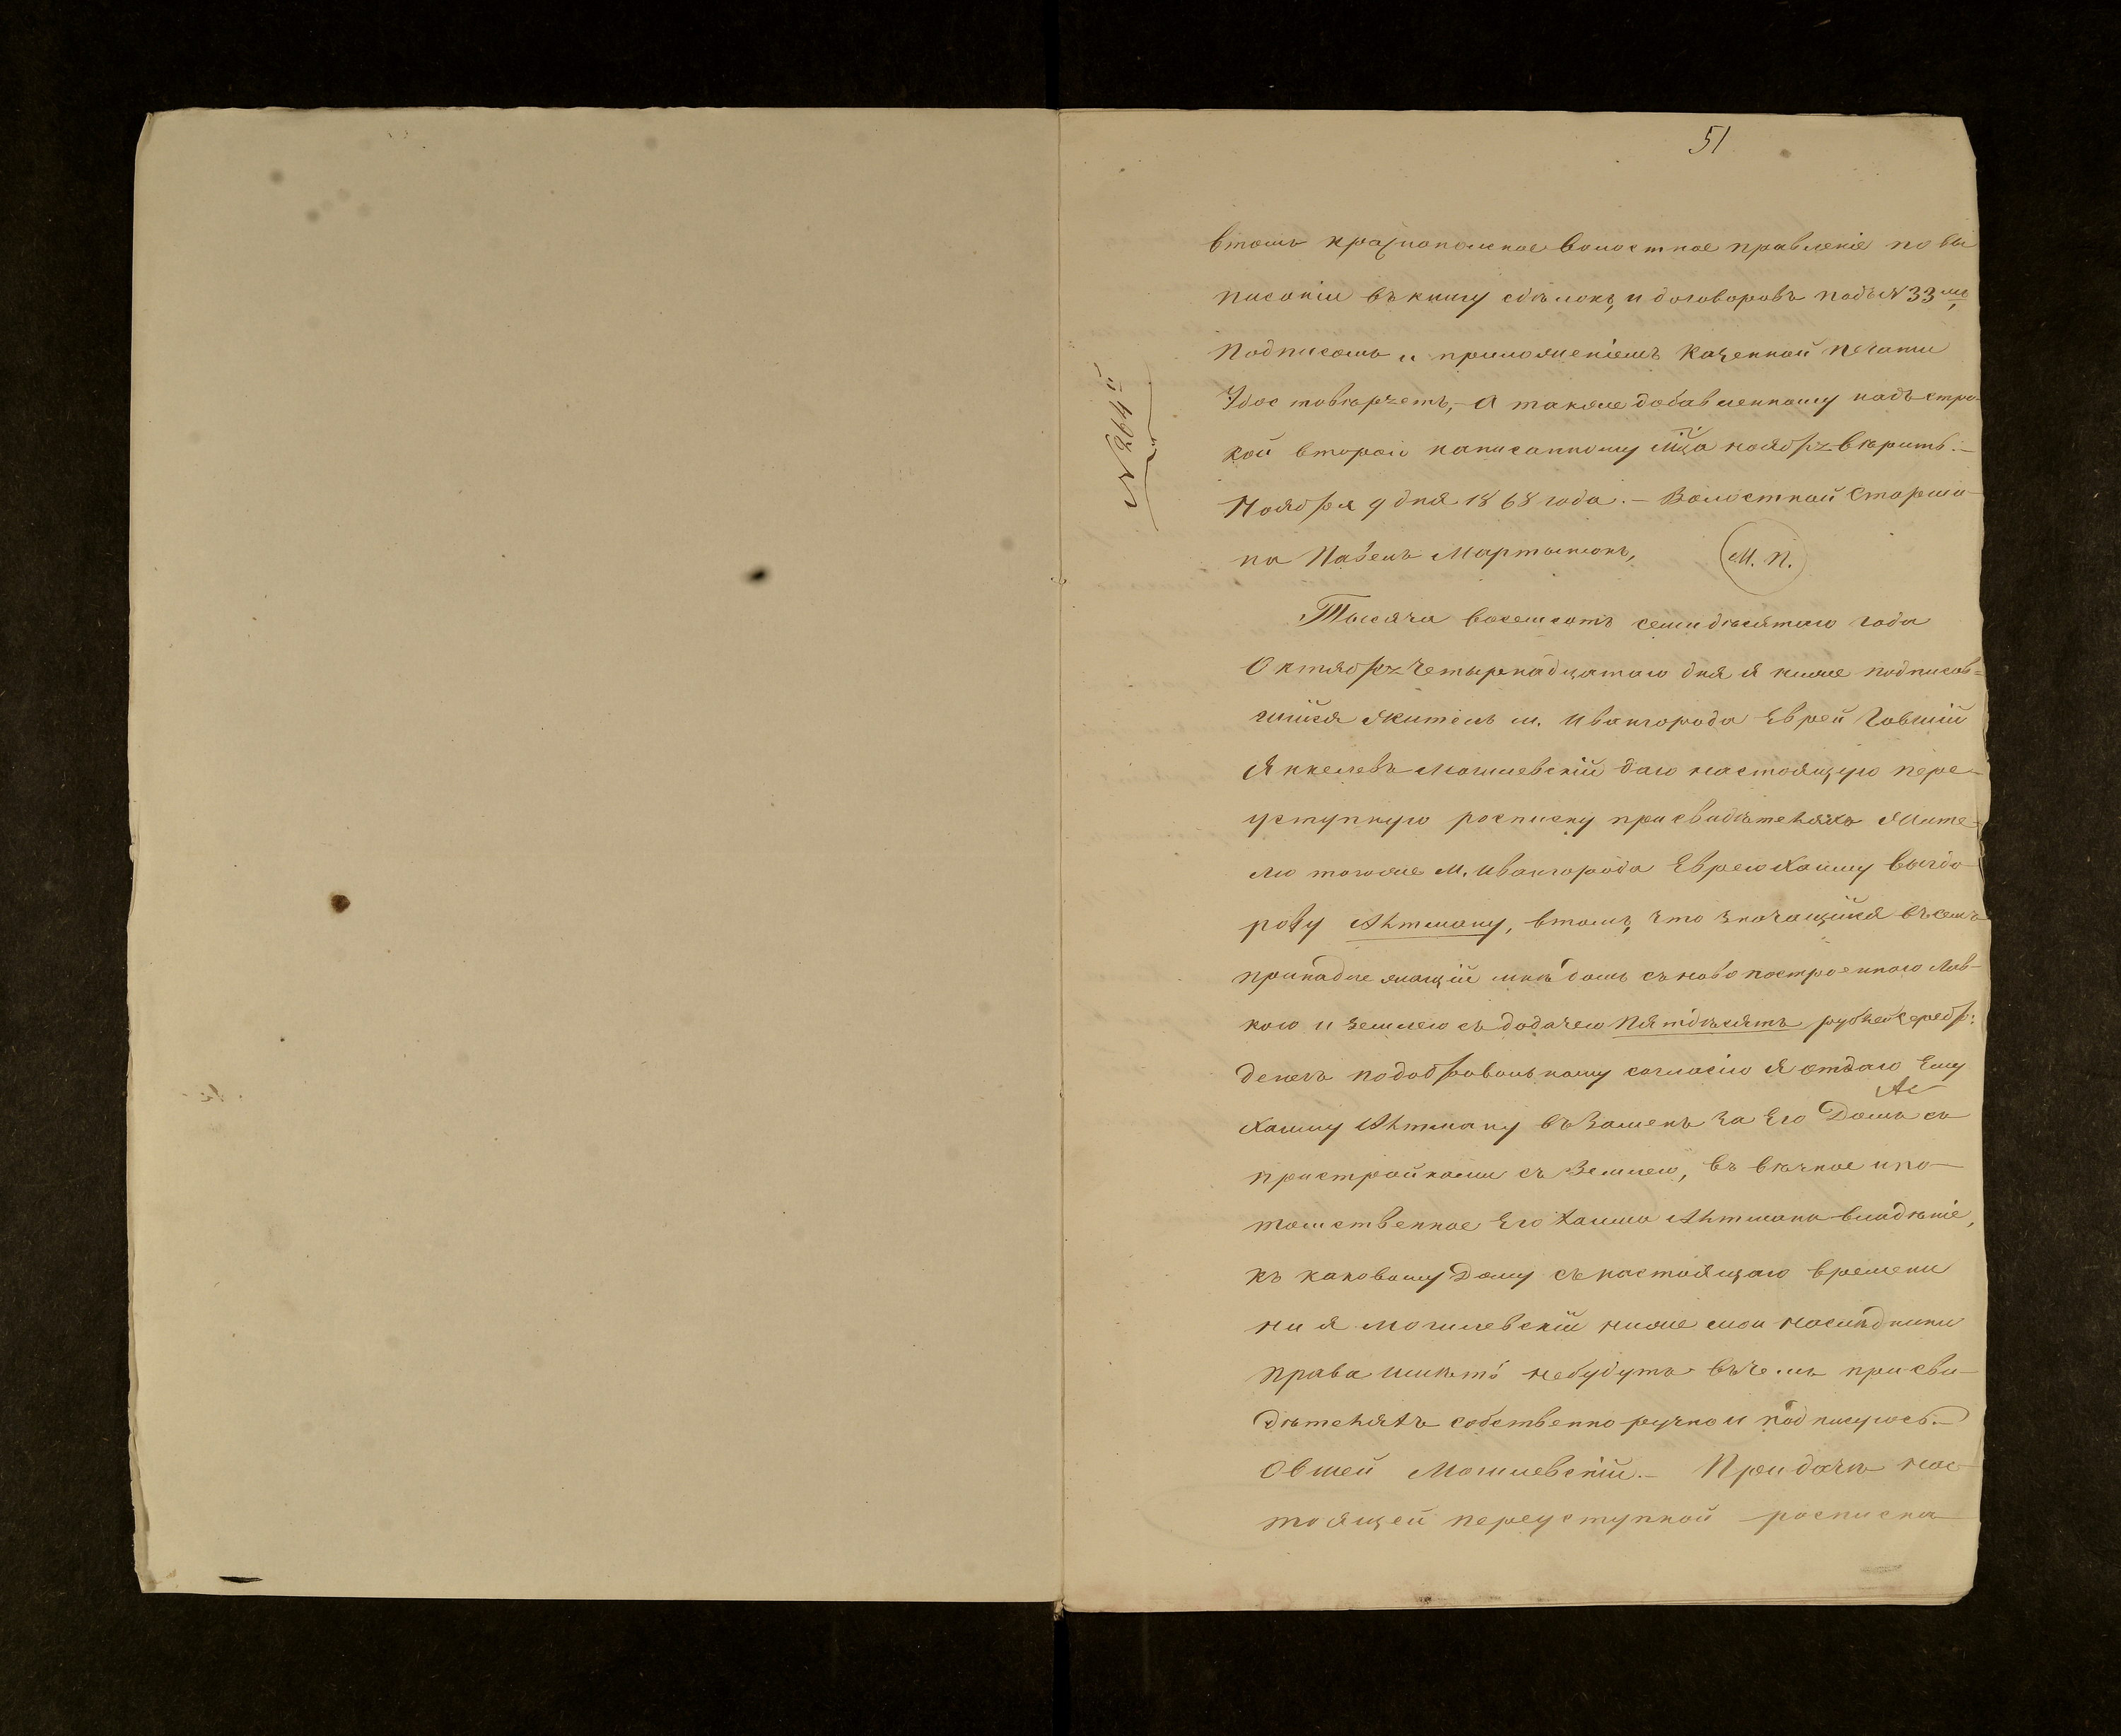 51
втомъ краснопольское волостное правленіе по вы
писаніи въ книгу сдѣлокъ, и договоровъ подъ № 33мъ,
Подписомъ и приложеніемъ Казенной печати
Удостовѣряетъ, – А также добавленному надъ стро-
кой второй написанному м̃ца ноября вѣрить. –
Ноября 9 дня 1868 года. – Волостной Старши-
на Павелъ Мартынюкъ, М. П.
№ 264й
Тысяча восемсотъ семидѣсятаго года
Октября Четырнадцатаго дня я ниже подписав-
шійся житель м. Ивангорода Еврей Говшій
Янкелевъ Могилевскій даю настоящую пере-
уступную росписку при свидѣтеляхъ Жите-
лю тогоже М. Ивангорода Еврею Хаиму
Ахтману, втомъ, что значащійся въ семъ
принадлежащій мнѣ домъ съ ново построенною Лав-
кою и землею съ додачею пятдѣсятъ рублей серебр:
денегъ по добровольному согласію я отдаю Ему
Хаиму Ахтману въ Заменъ за Его Домъ съ
пристройками съ Землею, въ вѣчное и по-
томственное Его Хаима Ахтмана владѣніе,
къ каковому Дому съ настоящаго времени
ни я Могилевскій ниже мои наслѣдники
права имѣть небудутъ въ чемъ при сви-
дѣтеляхъ собственно ручно и подписуюсь. –
Овшей Могилевскій. – При дачѣ нас-
тоящей переуступной росписки